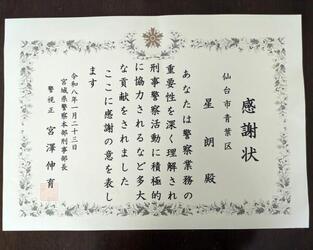 感謝状
仙台市青葉区
星朗殿
あなたは警察業務の
重要性を深く理解され
刑事警察活動に積極的
に協力されるなど多大
な貢献をされました
ここに感謝の意を表し
ます
令和八年一月二十三日
宮城県警察本部刑事部長
警視正 宮澤伸育